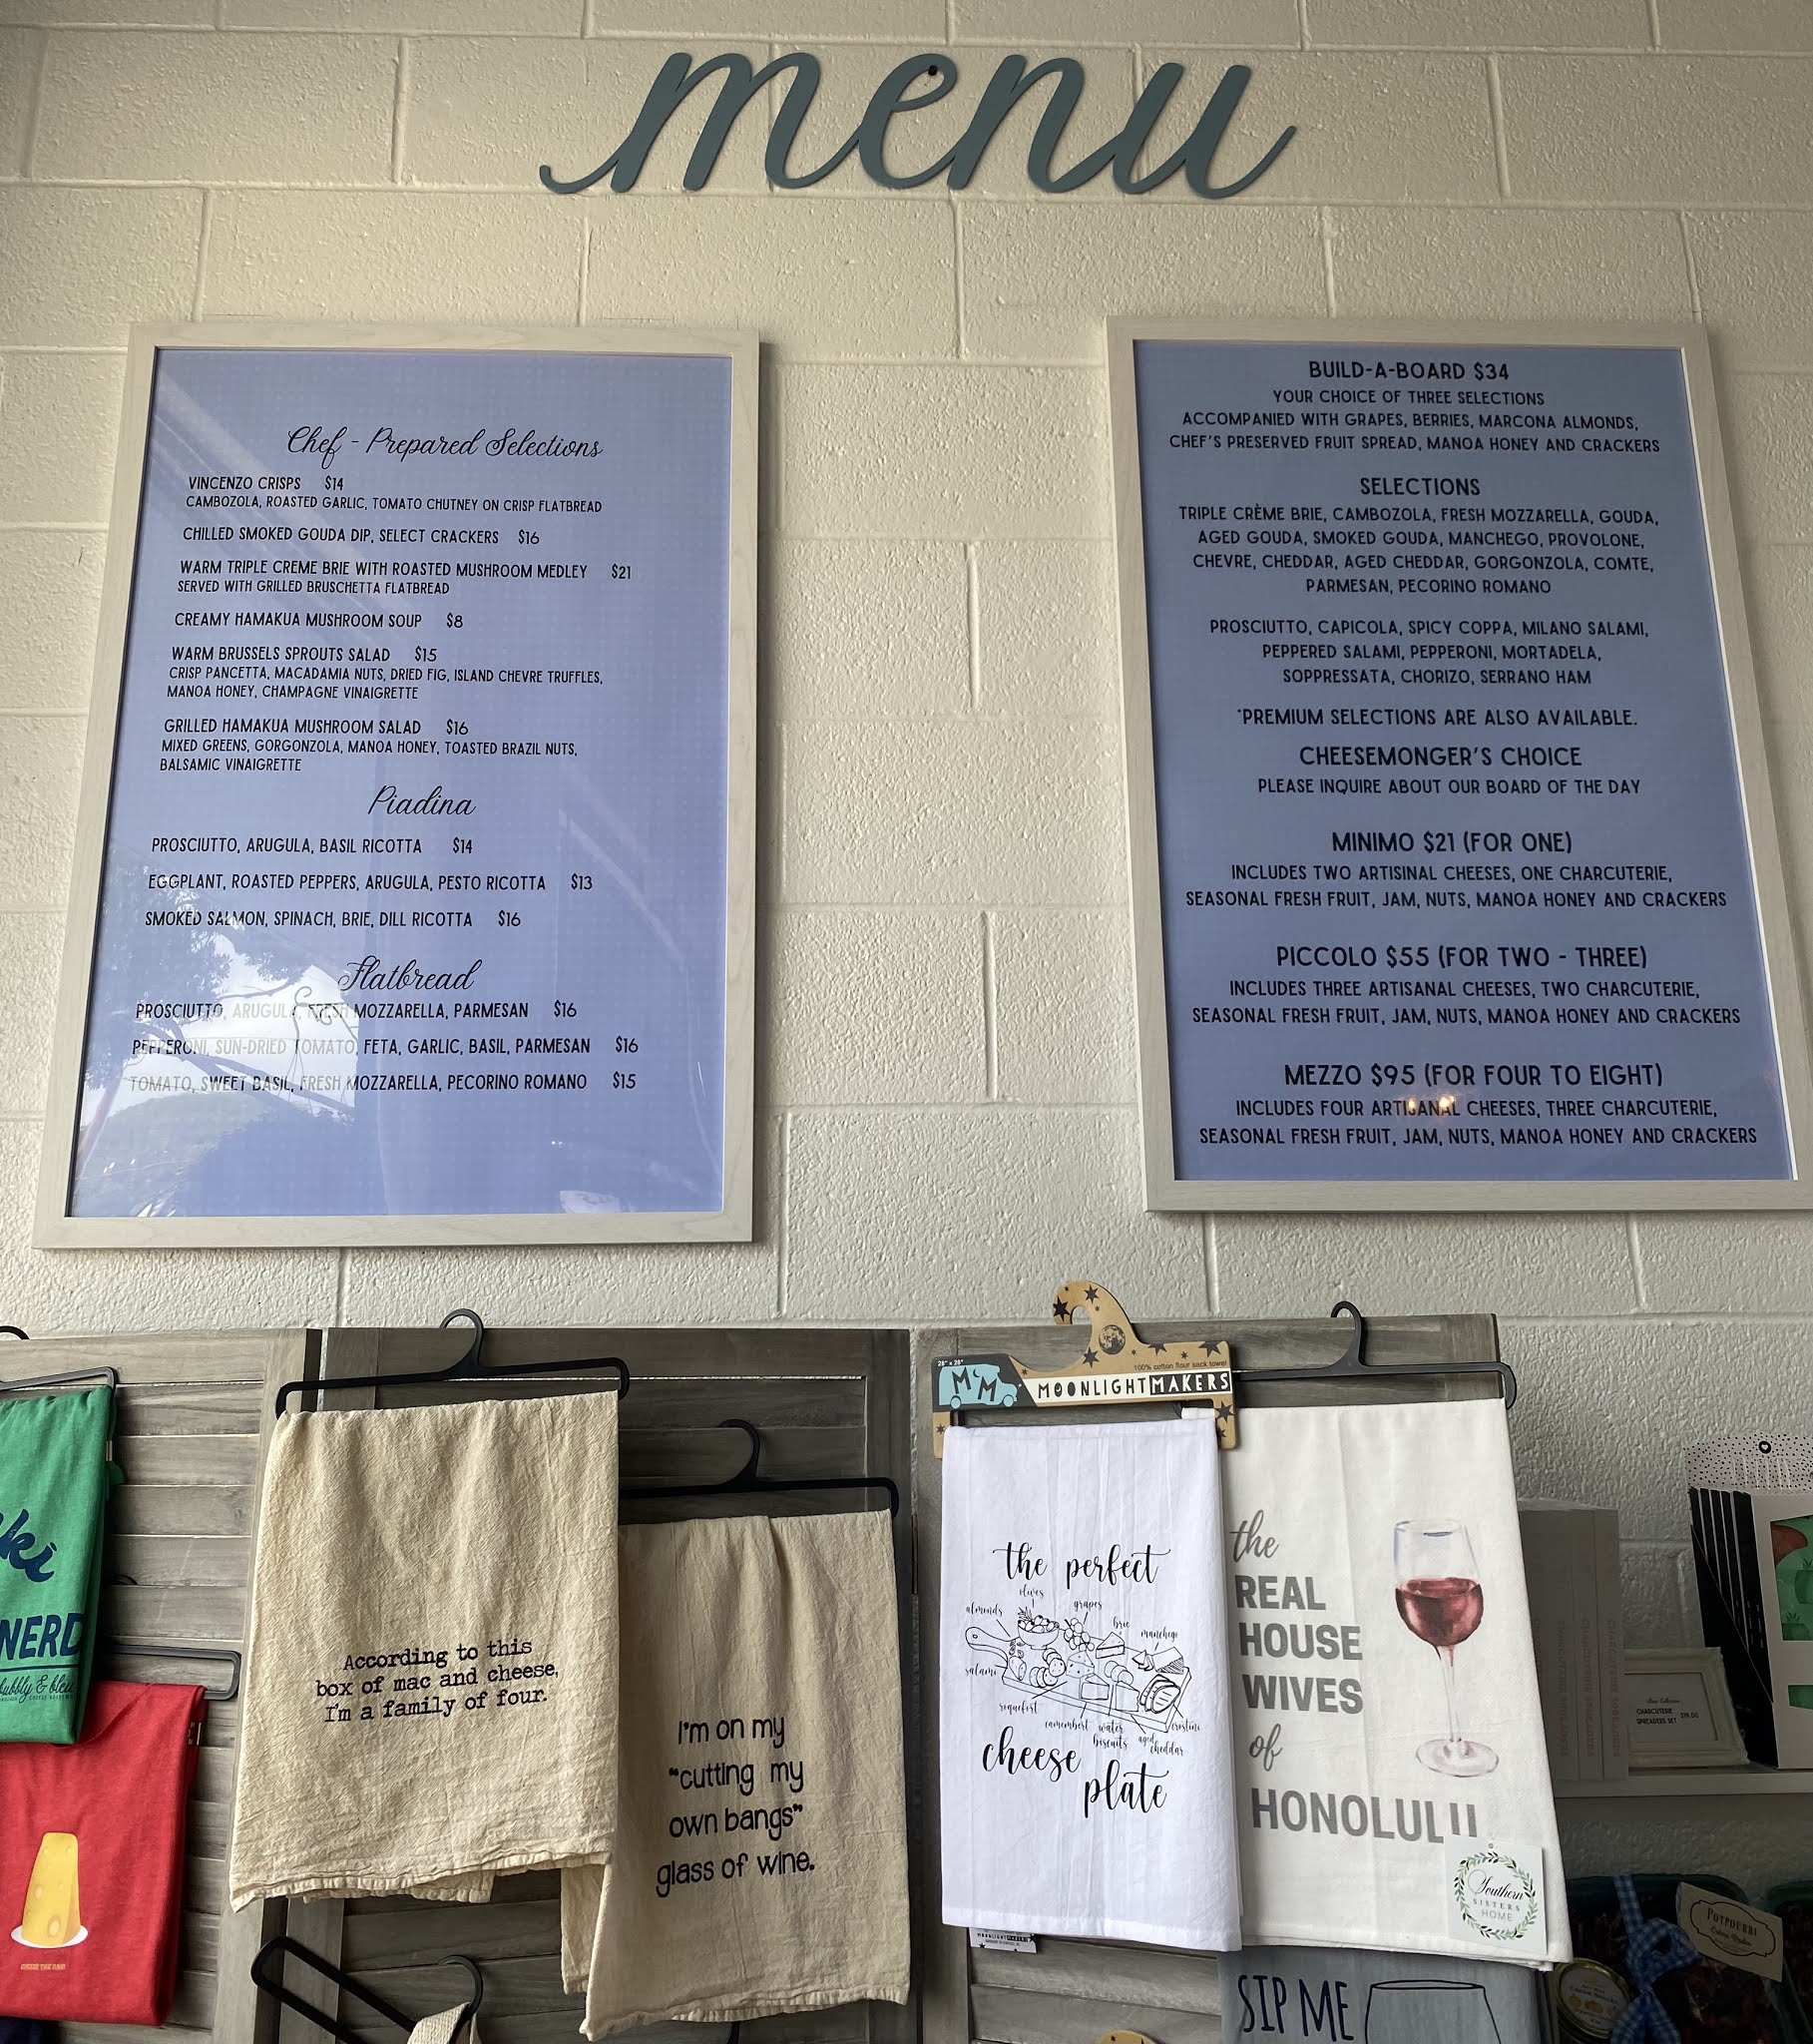 menu
Chef - Prepared Selections
VINCENZO CRISPS $14
CAMBOZOLA, ROASTED GARLIC, TOMATO CHUTNEY ON CRISP FLATBREAD
CHILLED SMOKED GOUDA DIP, SELECT CRACKERS $16
WARM TRIPLE CREME BRIE WITH ROASTED MUSHROOM MEDLEY $21
SERVED WITH GRILLED BRUSCHETTA FLATBREAD
CREAMY HAMAKUA MUSHROOM SOUP $8
WARM BRUSSELS SPROUTS SALAD $15
CRISP PANCETTA, MACADAMIA NUTS, DRIED FIG, ISLAND CHEVRE TRUFFLES,
MANOA HONEY, CHAMPAGNE VINAIGRETTE
GRILLED HAMAKUA MUSHROOM SALAD $16
MIXED GREENS, GORGONZOLA, MANOA HONEY, TOASTED BRAZIL NUTS,
BALSAMIC VINAIGRETTE
Piadina
PROSCIUTTO, ARUGULA, BASIL RICOTTA $14
EGGPLANT, ROASTED PEPPERS, ARUGULA, PESTO RICOTTA $13
SMOKED SALMON, SPINACH, BRIE, DILL RICOTTA $16
Flatbread
PROSCIUTTO, ARUGULA, FRESH MOZZARELLA, PARMESAN $16
PEPPERONI, SUN-DRIED TOMATO, FETA, GARLIC, BASIL, PARMESAN $16
TOMATO, SWEET BASIL, FRESH MOZZARELLA, PECORINO ROMANO $15
BUILD-A-BOARD $34
YOUR CHOICE OF THREE SELECTIONS
ACCOMPANIED WITH GRAPES, BERRIES, MARCONA ALMONDS,
CHEF'S PRESERVED FRUIT SPREAD, MANOA HONEY AND CRACKERS
SELECTIONS
TRIPLE CRÈME BRIE, CAMBOZOLA, FRESH MOZZARELLA, GOUDA,
AGED GOUDA, SMOKED GOUDA, MANCHEGO, PROVOLONE,
CHEVRE, CHEDDAR, AGED CHEDDAR, GORGONZOLA, COMTE,
PARMESAN, PECORINO ROMANO
PROSCIUTTO, CAPICOLA, SPICY COPPA, MILANO SALAMI,
PEPPERED SALAMI, PEPPERONI, MORTADELA,
SOPPRESSATA, CHORIZO, SERRANO HAM
*PREMIUM SELECTIONS ARE ALSO AVAILABLE.
CHEESEMONGER'S CHOICE
PLEASE INQUIRE ABOUT OUR BOARD OF THE DAY
MINIMO $21 (FOR ONE)
INCLUDES TWO ARTISINAL CHEESES, ONE CHARCUTERIE,
SEASONAL FRESH FRUIT, JAM, NUTS, MANOA HONEY AND CRACKERS
PICCOLO $55 (FOR TWO - THREE)
INCLUDES THREE ARTISANAL CHEESES, TWO CHARCUTERIE,
SEASONAL FRESH FRUIT, JAM, NUTS, MANOA HONEY AND CRACKERS
MEZZO $95 (FOR FOUR TO EIGHT)
INCLUDES FOUR ARTISANAL CHEESES, THREE CHARCUTERIE,
SEASONAL FRESH FRUIT, JAM, NUTS, MANOA HONEY AND CRACKERS
NERD
bubbly & bleu
According to this
box of mac and cheese,
I'm a family of four.
I'm on my
"cutting my
own bangs"
glass of wine.
28" x 28"
100% cotton flour sack towel
MM
MOONLIGHTMAKERS
the perfect
olives
almonds
grapes
brie
manchego
salami
roquefort
camembert
water
biscuits
aged
cheddar
crostini
cheese
plate
MOONLIGHTMAKERS
the
REAL
HOUSE
WIVES
of
HONOLULU
Southern
SISTERS
HOME
SIP ME
CHARCUTERIE
SPREADERS SET $19.00
POTPOURRI